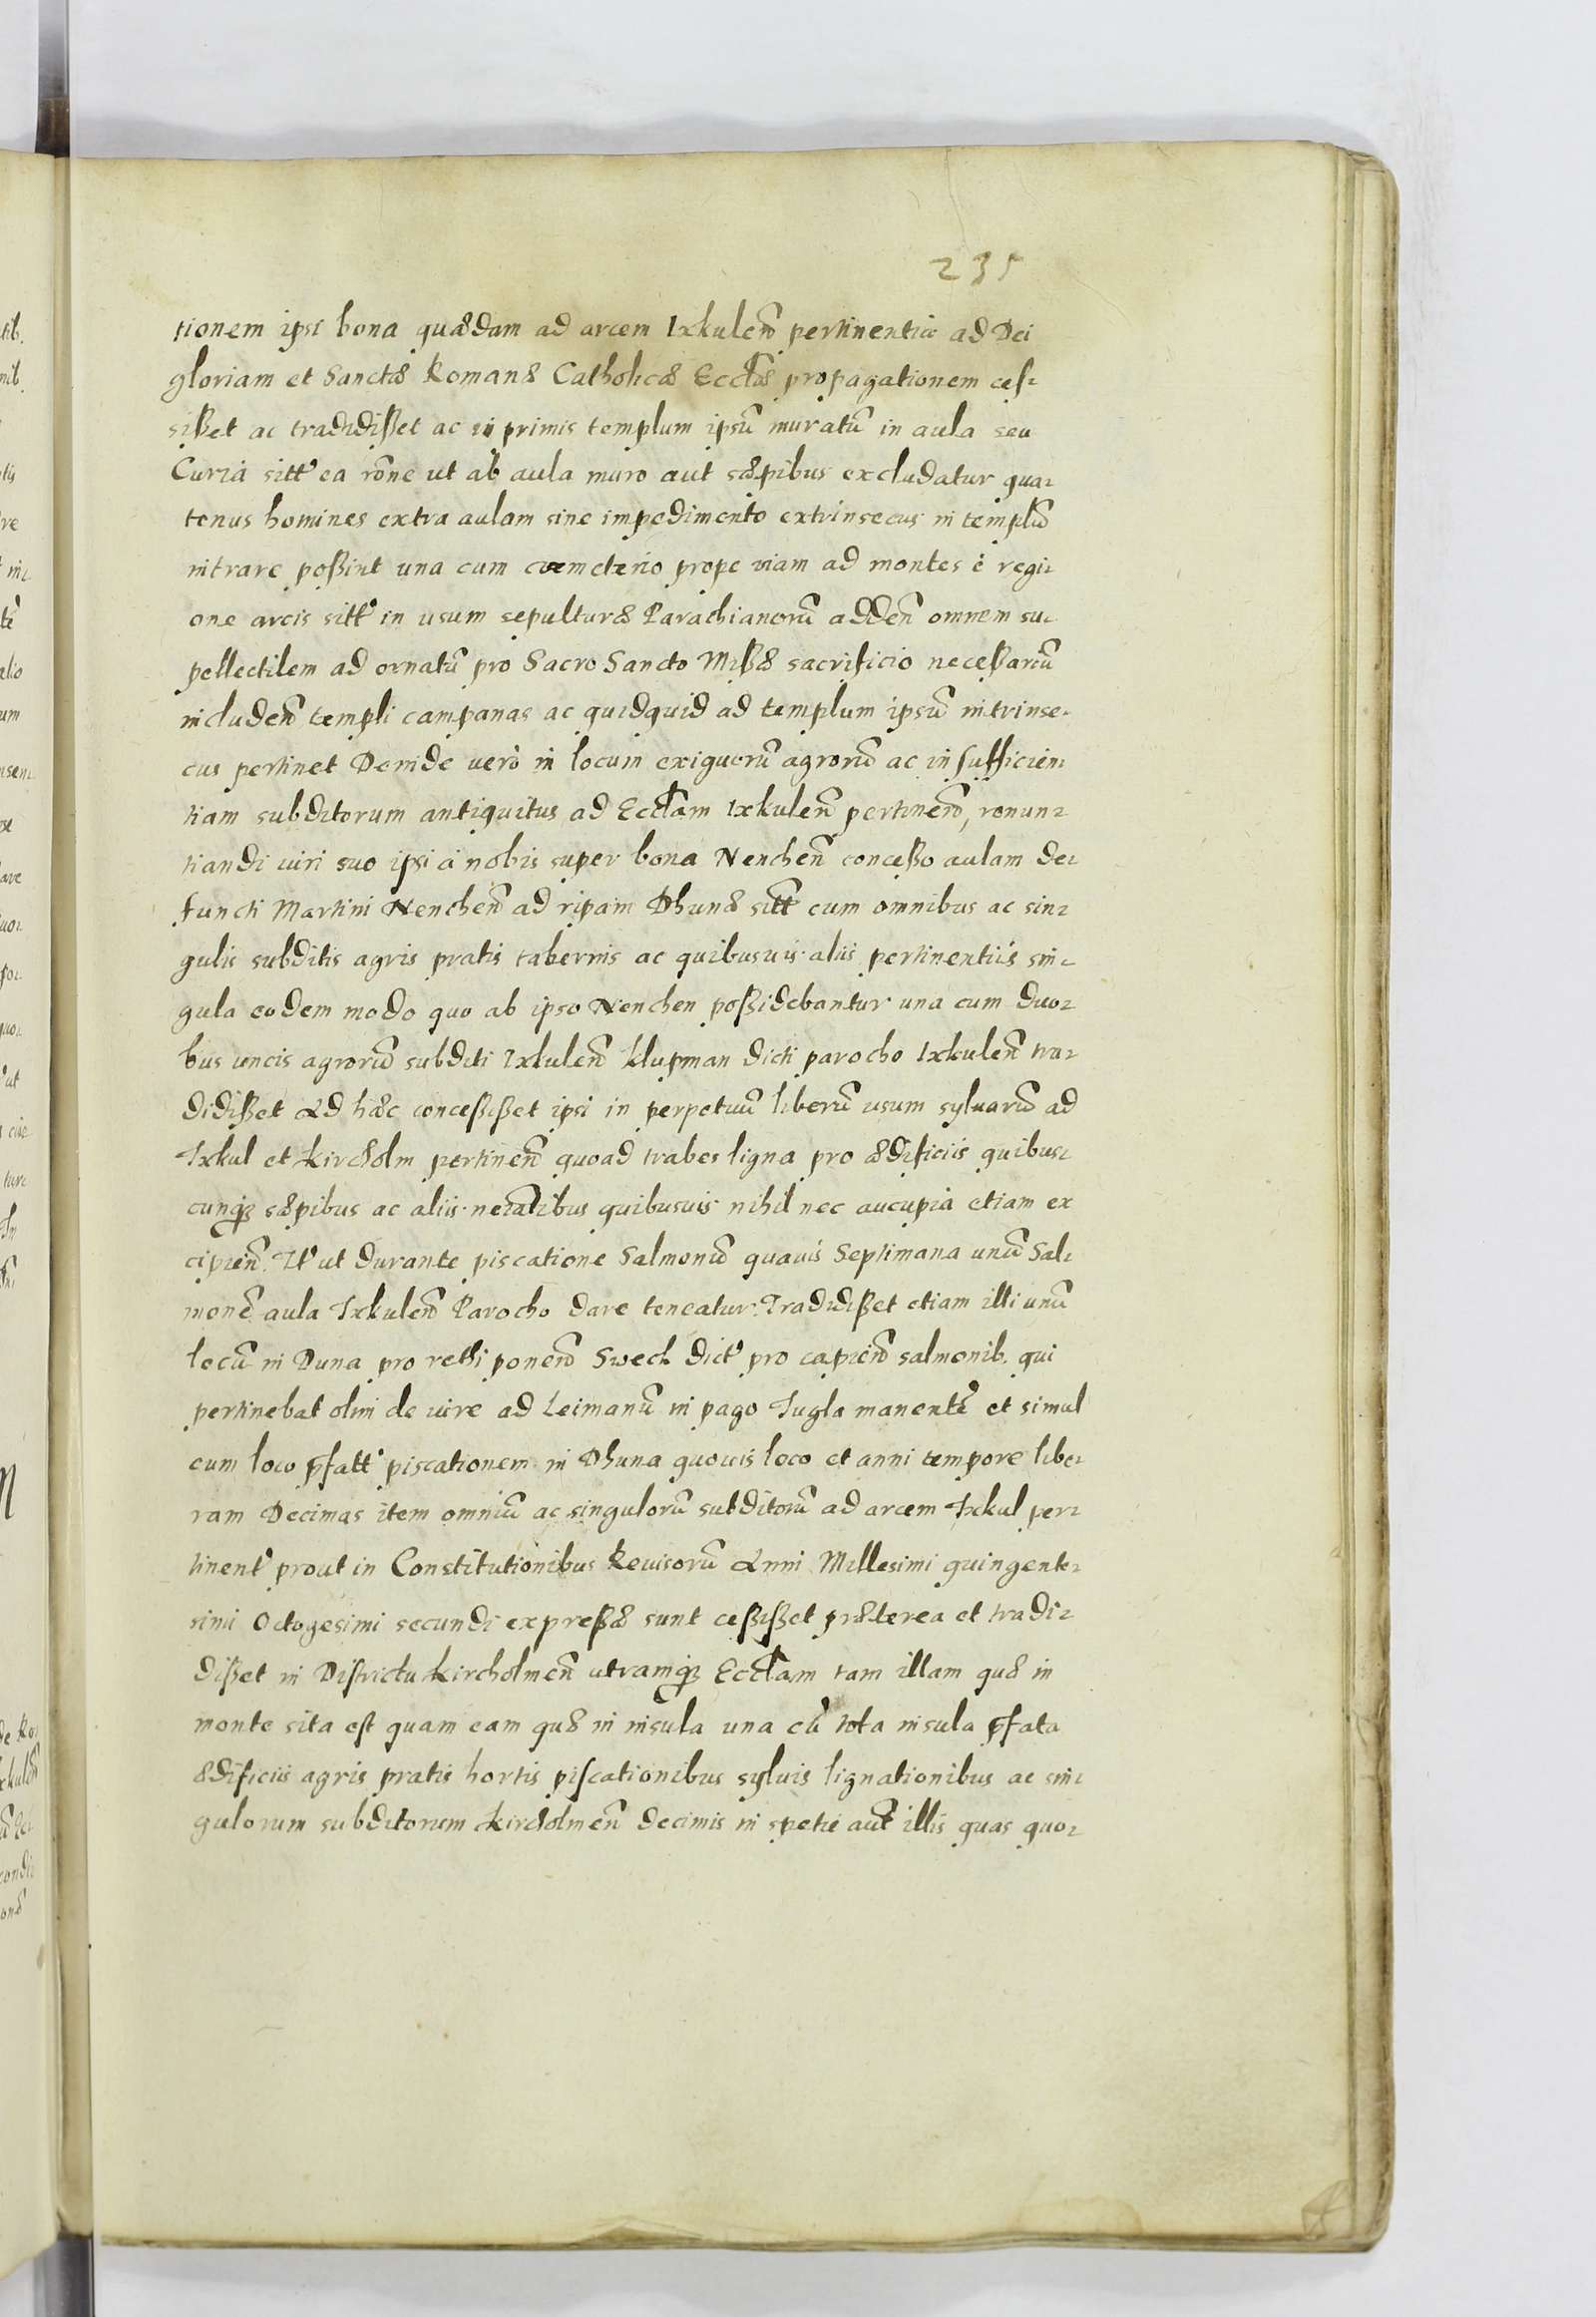 235
tionem ipsi bona quædam ad arcem Ixkuleñ pertinentia ad Dei
gloriam et Sanctæ Romanæ Catholicæ Eccłæ propagationem ces-
sißet ac tradidißet ac in primis templum ipsũ muratũ in aula seu
Curia sitt' ea rõne ut ab aula muro aut sæpibus excludatur qua-
tenus homines extra aulam sine impedimento extrinsecus in templũ
intrare poßint una cum cœmeterio prope viam ad montes è regi-
one arcis sitt' in usum sepulturæ Parachianorũ addeñ omnem su-
pellectilem ad ornatũ pro Sacro Sancto Mißæ sacrificio neceßariũ
includeñ templi campanas ac quidquid ad templum ipsũ intrinse-
cus pertinet Deinde verò in locum exiguorũ agrorũ ac insufficien-
tiam subditorum antiquitus ad Eccłam Ixkuleñ pertineñ, renun-
tiandi iuri suo ipsi à nobis super bona Nencheñ conceßo aulam de-
functi Martini Nencheñ ad ripam Dhunæ sitt cum omnibus ac sin-
gulis subditis agris pratis tabernis ac quibusuis aliis pertinentiis sin-
gula eodem modo quo ab ipso Nenchen poßidebantur una cum duo-
bus uncis agrorũ subditi Ixkuleñ Klupman dicti parocho Ixkuleñ tra-
didißet Ad hæc conceßißet ipsi in perpetuũ liberũ usum syluarũ ad
Ixkul et Kircholm pertineñ quoad trabes ligna pro ædificiis quibus-
cunq; sæpibus ac aliis neceßatibus quibusuis nihil nec aucupia etiam ex
cipieñ. It' ut durante piscatione Salmonũ quauis Septimana unũ Sal-
monẽ aula Ixkuleñ Parocho dare teneatur. Tradidißet etiam illi unũ
locũ in Duna pro rethi poneñ Swech dict' pro capieñ salmonib. qui
pertinebat olim de iure ad Leimanũ in pago Jugla manentẽ et simul
cum loco p̃fatt' piscationem in Dhuna quouis loco et anni tempore libe-
ram Decimas item omniũ ac singulorũ subditorũ ad arcem Ixkul per-
tinent' prout in Constitutionibus Reuisorũ Anni Millesimi quingente-
simi Octogesimi secundi expreßæ sunt ceßißet præterea et tradi-
dißet in Districtu Kircholmeñ utramq; Eccłam tam illam quæ in
monte sita est quam eam quæ in insula una cũ tota insula p̃fata
ædificiis agris pratis hortis piscationibus syluis lignationibus ac sin-
gulorum subditorum Kircholmeñ decimis in spetie aut̃ illis quas quo-